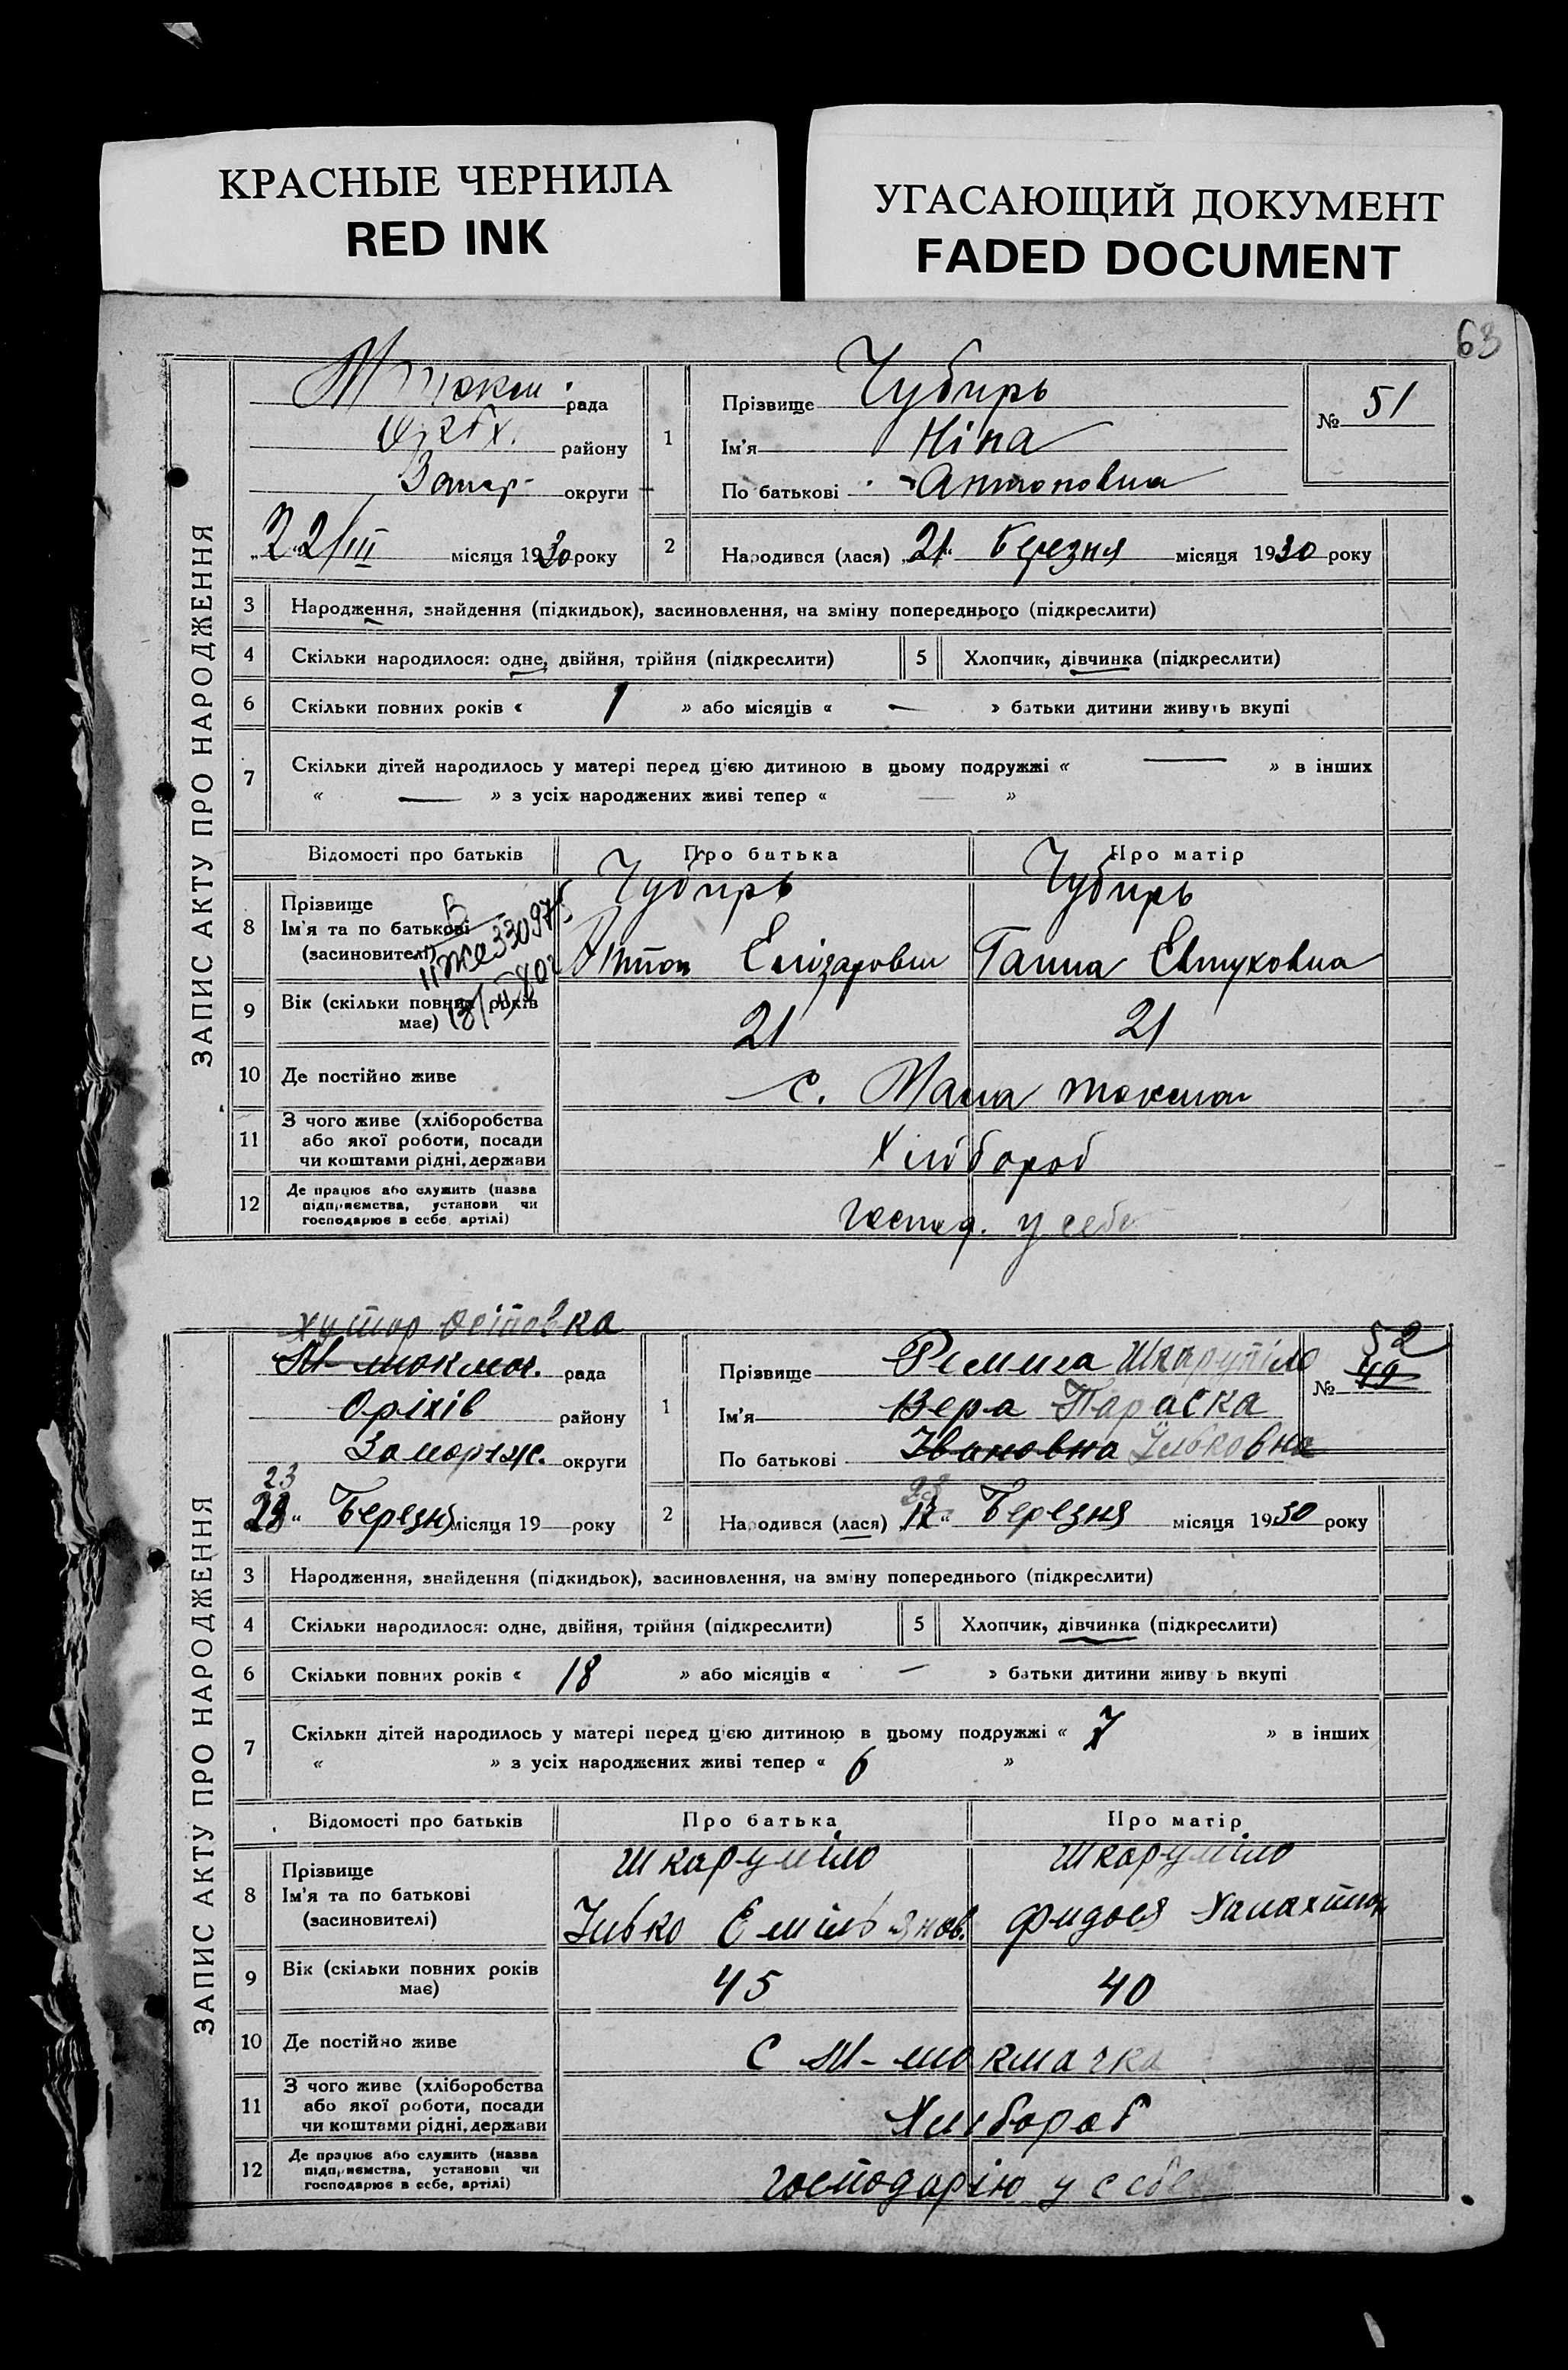 КРАСНЫЕ ЧЕРНИЛА
RED INK
УГАСАЮЩИЙ ДОКУМЕНТ
FADED DOCUMENT
63
ЗАПИС АКТУ ПРО НАРОДЖЕННЯ
рада
району
Запор округи
22/III місяця 1930 року
1 Прізвище Чубирь
Ім'я Ніна
По батькові Антоновна
№ 51
2 Народився (лася) „21“ березня місяця 1930 року
3 Народження, знайдення (підкидьок), засиновлення, на зміну попереднього (підкреслити)
4 Скільки народилося: одне, двійня, трійня (підкреслити) 5 Хлопчик, дівчинка (підкреслити)
6 Скільки повних років « 1 » або місяців « — » батьки дитини живуть вкупі
7 Скільки дітей народилось у матері перед цією дитиною в цьому подружжі « — » в інших
« — » з усіх народжених живі тепер « — »
Відомості про батьків Про батька Про матір
8 Прізвище Чубирь Чубирь
Ім'я та по батькові
(засновителі) Антон Єлізарович Ганна Євтуховна
9 Вік (скільки повних років
має) 21 21
10 Де постійно живе с. Мала Токмач
11 З чого живе (хліборобства
або якої роботи, посади
чи коштами рідні, держави Хлібороб
12 Де працює або служить (назва
підприємства, установи чи
господарює в себе, артілі) Господ. у себе
хутор Осіповка
ЗАПИС АКТУ ПРО НАРОДЖЕННЯ
М-токмач. рада
Оріхів району
Запоріж. округи
23
„ “ Березня місяця 19 року
1 Прізвище Шкарупіло
Ім'я Вера Параска
По батькові Івановна Ільковна
52
№ 49
2 Народився (лася) „12“ Березня місяця 1930 року
3 Народження, знайдення (підкидьок), засиновлення, на зміну попереднього (підкреслити)
4 Скільки народилося: одне, двійня, трійня (підкреслити) 5 Хлопчик, дівчинка (підкреслити)
6 Скільки повних років « 18 » або місяців « — » батьки дитини живу ь вкупі
7 Скільки дітей народилось у матері перед цією дитиною в цьому подружжі « 7 » в інших
« » з усіх народжених живі тепер « 6 »
Відомості про батьків Про батька Про матір
8 Прізвище Шкарупіло Шкарупіло
Ім'я та по батькові
(засиновителі) Ілько Омільянов. Фидося
9 Вік (скільки повних років
має) 45 40
10 Де постійно живе с М-токмачка
11 З чого живе (хліборобства
або якої роботи, посади
чи коштами рідні, держави Хлібороб
12 Де працює або служить (назва
підприємства, установи чи
господарює в себе, артілі) господарію у себе